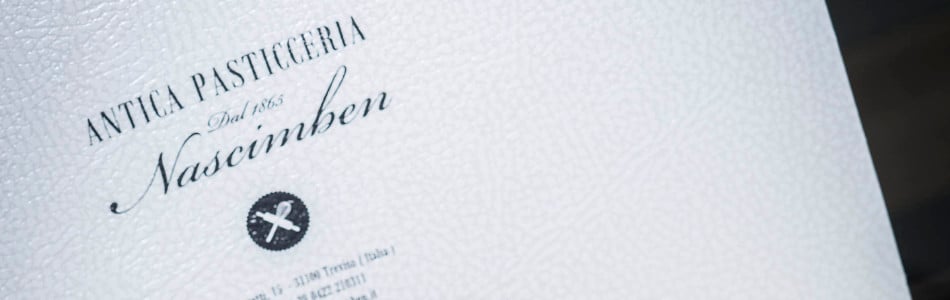 ANTICA PASTICCERIA
Dal 1865
Nascimben
15 - 31100 Treviso ( Italia )
0422 210311